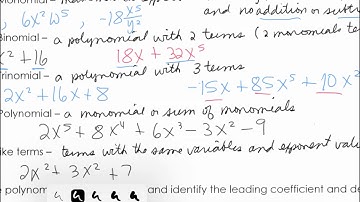 6x²w⁵, -18 x⁵/y² and no addition or subtr
Binomial - a polynomial with 2 terms (2 monomials te
x² + 16 18x + 32x⁵
Trinomial - a polynomial with 3 terms
2x² + 16x + 8 -15x + 85x⁵ + 10x²
Polynomial - a monomial or sum of monomials
2x⁵ + 8x⁴ + 6x³ - 3x² - 9
ike terms - terms with the same variables and exponent value
2x² + 3x² + 7
e polynom and identify the leading coefficient and de